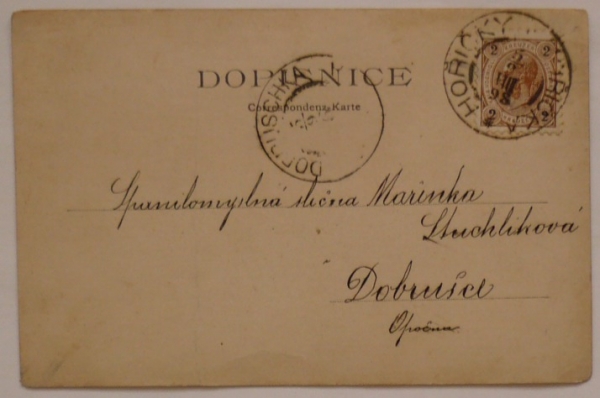 DOPISNICE
Correspondenz-Karte
HOŘIČKY
HOŘIČKA
2 2
2 2
DOBRUSCHKA
Spanilomyslná slečna Marinka
Stuchlíková
Dobrušce
Opočna